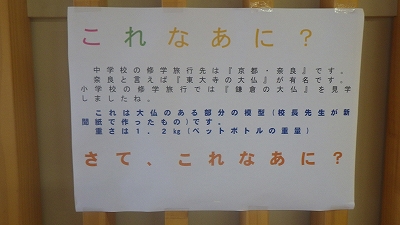 これなあに？
中学校の修学旅行先は『京都・奈良』です。
奈良と言えば『東大寺の大仏』が有名です。
小学校の修学旅行では『鎌倉の大仏』を見学
しましたね。
これは大仏のある部分の模型(校長先生が新
聞紙で作ったもの)です。
重さは１．２㎏(ペットボトルの重量)
さて、これなあに？